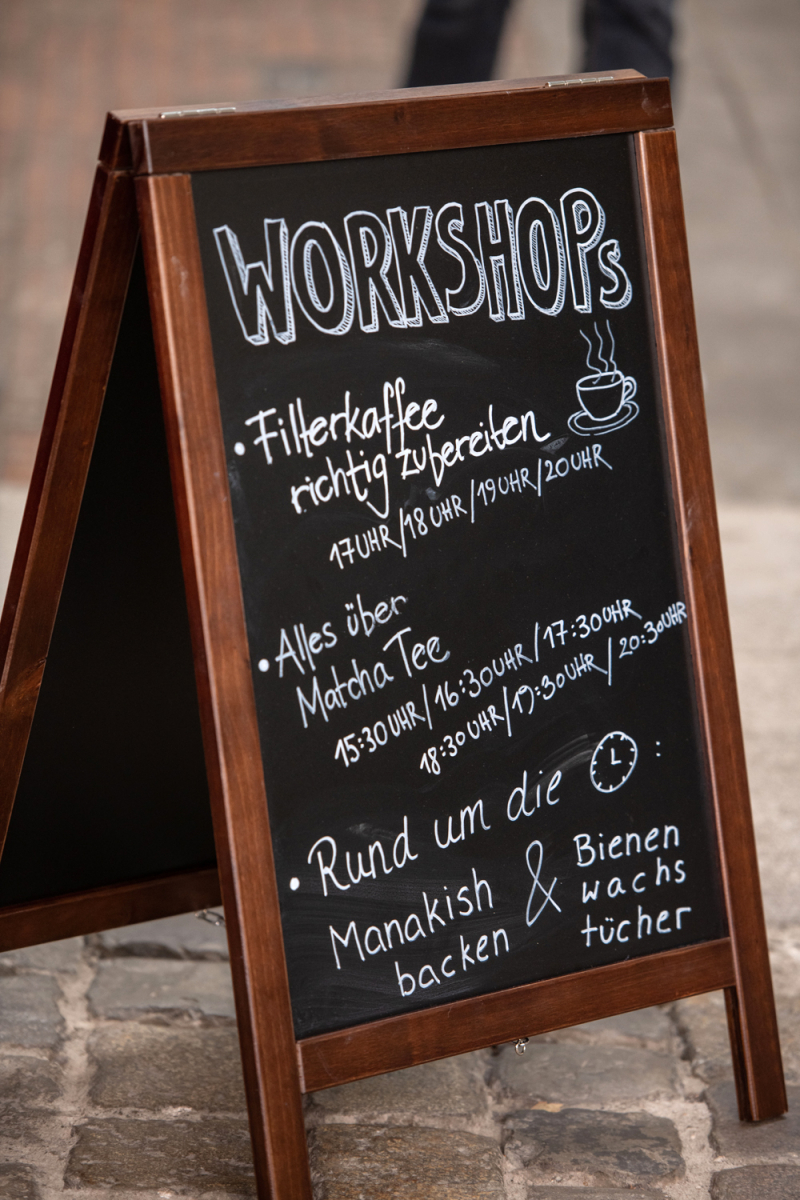 WORKSHOPs
• Filterkaffee
richtig zubereiten
17UHR/18UHR/19UHR/20UHR
• Alles über
Matcha Tee
15:30UHR/16:30UHR/17:30UHR
18:30UHR/19:30UHR/20:30UHR
• Rund um die :
Manakish & Bienen
backen wachs
tücher